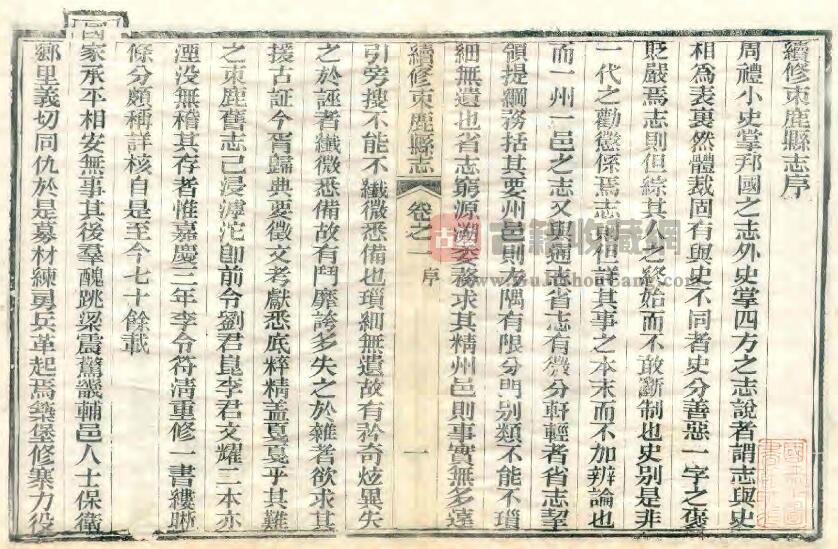 續修束鹿縣志序
周禮小史掌邦國之志外史掌四方之志說者謂志與史
相為表裏然體裁固有與史不同者史分善惡一字之褒
貶嚴焉志則但綜其人之終始而不敢斷制也史別是非
一代之勸懲係焉志則祖詳其事之本末而不加辨論也
而一州一邑之志又與通志省志有微分軒輊者省志挈
領提綱務括其要州邑則方隅有限分門別類不能不瑣
細無遺也省志窮源溯委務求其精州邑則事實無多遠
續修束鹿縣志 卷之一 序 一
引旁搜不能不纖微悉備也瑣細無遺故有矜奇炫異失
之於誣者纖微悉備故有鬥靡誇多失之於雜者欲求其
援古証今胥歸典要徵文考獻悉底粹精蓋戛戛乎其難
之束鹿舊志已浸滹沱卽前令劉君崑李君文耀二本亦
湮没無稽其存者惟嘉慶三年李令符清重修一書縷晰
條分頗稱詳核自是至今七十餘載
國家承平相安無事其後羣醜跳梁震驚畿輔邑人士保衛
鄉里義切同仇於是募材練勇兵革起焉築堡修寨力役
古籍收藏網